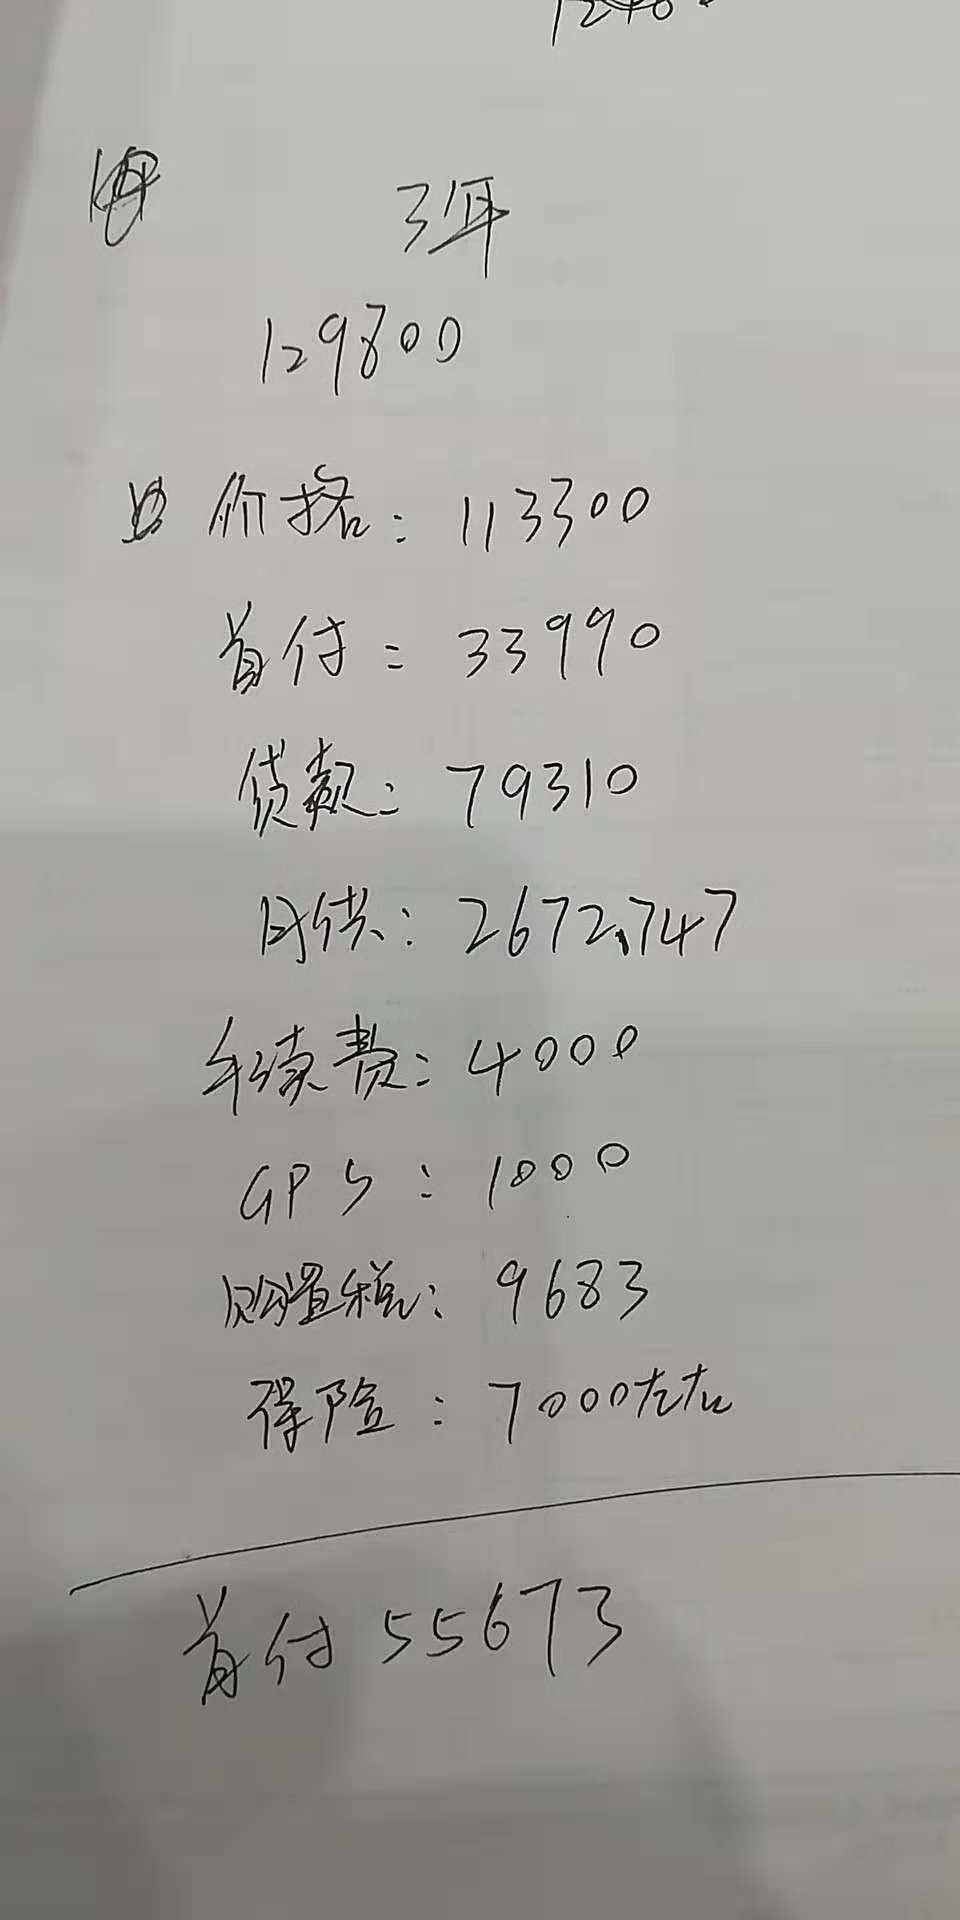 3年
129800
价格：113300
首付：33990
贷款：79310
月供：2672.747
手续费：4000
GPS：1000
购置税：9683
保险：7000左右
首付55673